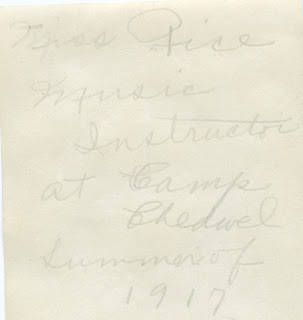 Miss Rice
Music
Instructor
at Camp
Chedwel
Summer of
1917